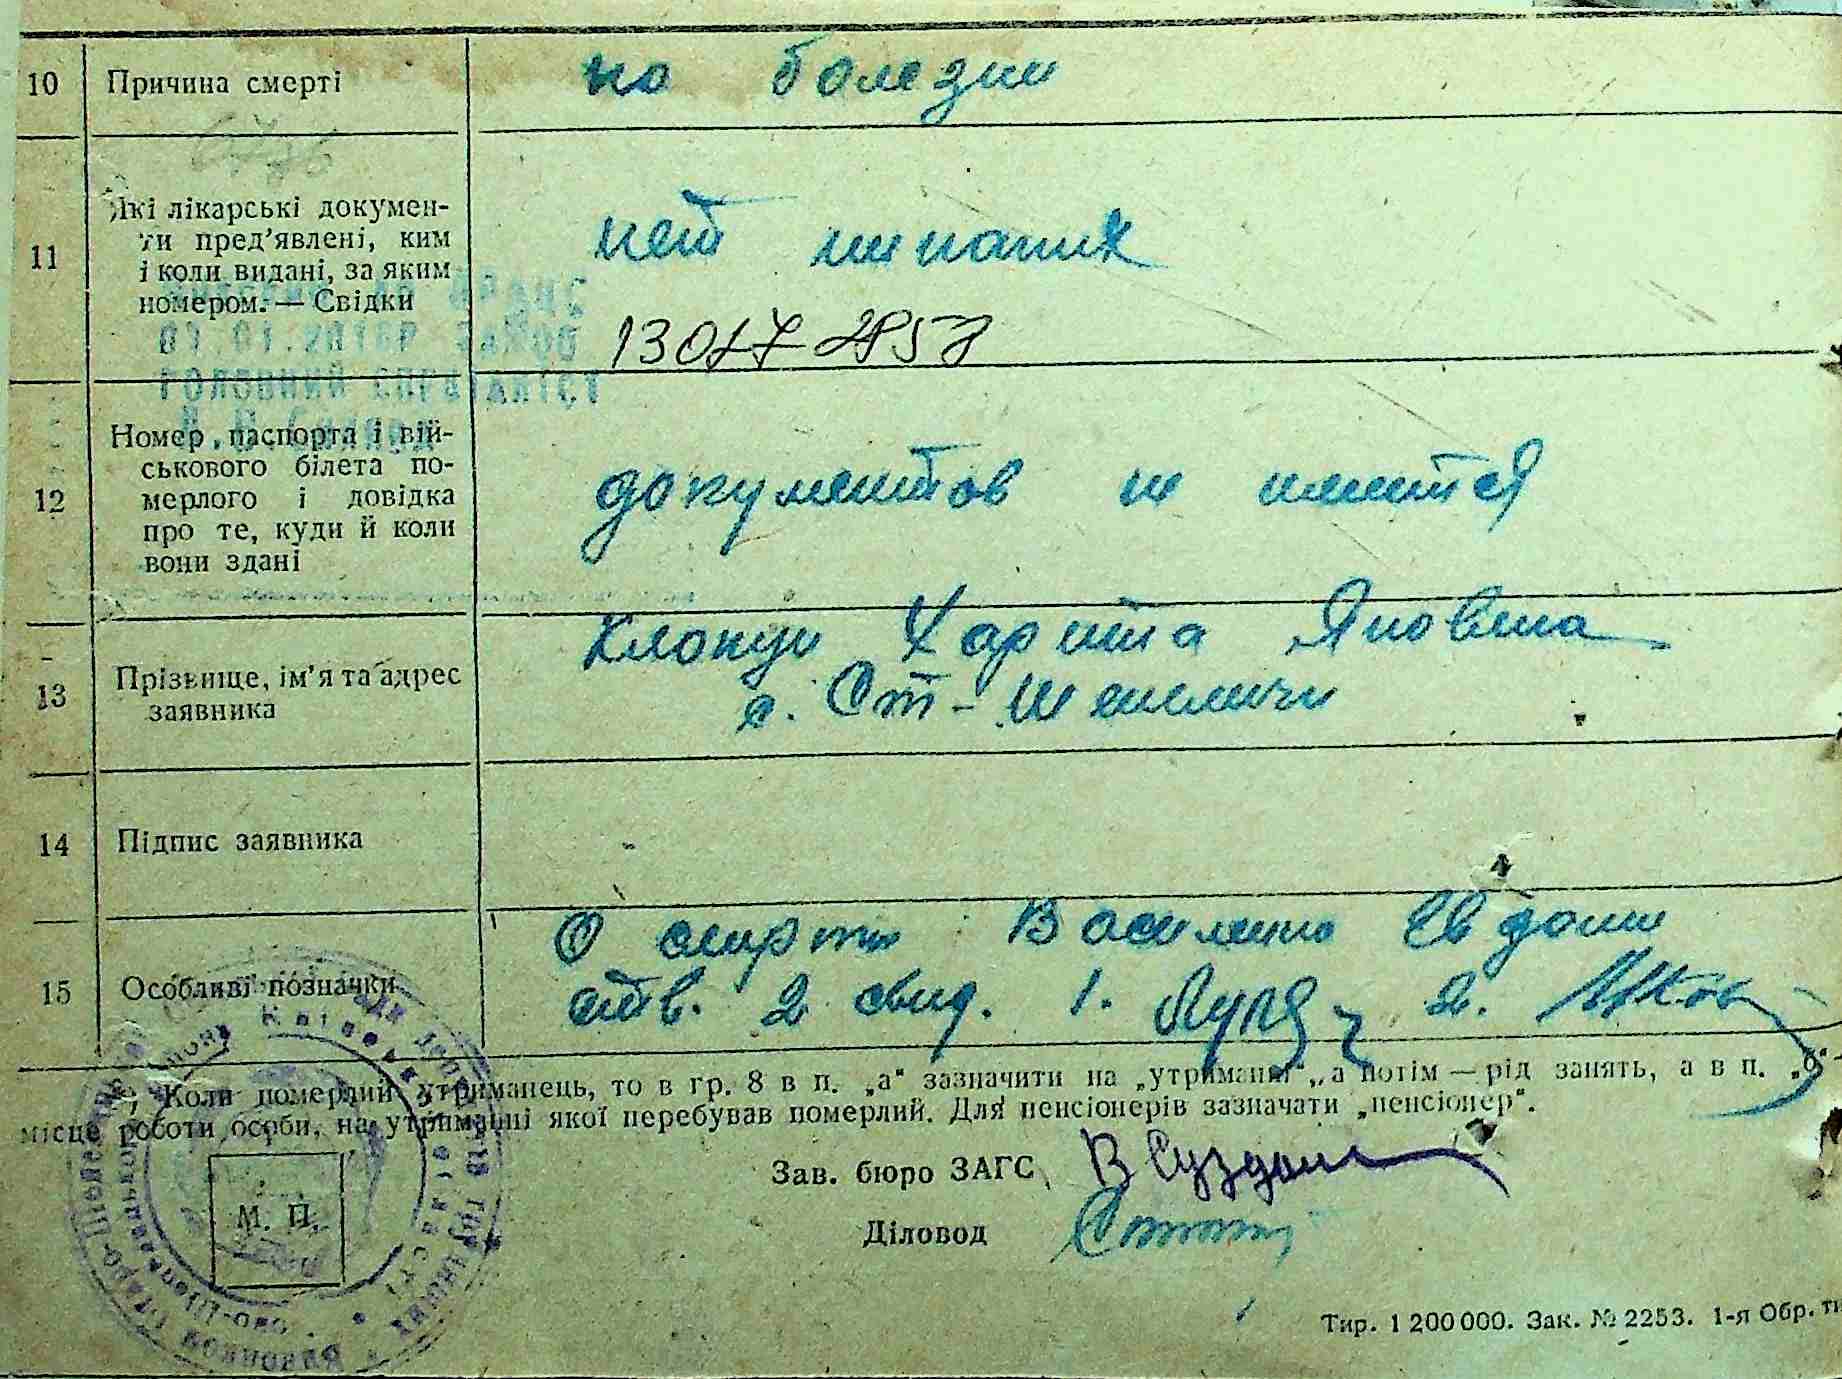 10 Причина смерті по болезни
11 Які лікарські докумен-
ти пред’явлені, ким
і коли видані, за яким
номером. — Свідки
нет никаких
12 Номер паспорта і вій-
ськового білета по-
мерлого і довідка
про те, куди й коли
вони здані
документов не имеится
13 Прізвище, ім’я та адрес
заявника
Харита Яковлена
с. Ст-Шепеличи
14 Підпис заявника
15 Особливі позначки
О смерти Василенко Евдокии
2 свид. 1. 2.
Коли померлий утриманець, то в гр. 8 в п. „а“ зазначити на „утриманні“, а потім — рід занять, а в п. „б“ -
місце роботи особи, на утриманні якої перебував померлий. Для пенсіонерів зазначати „пенсіонер“.
Зав. бюро ЗАГС
Діловод
М. П.
Тир. 1 200 000. Зак. № 2253. 1-я Обр.